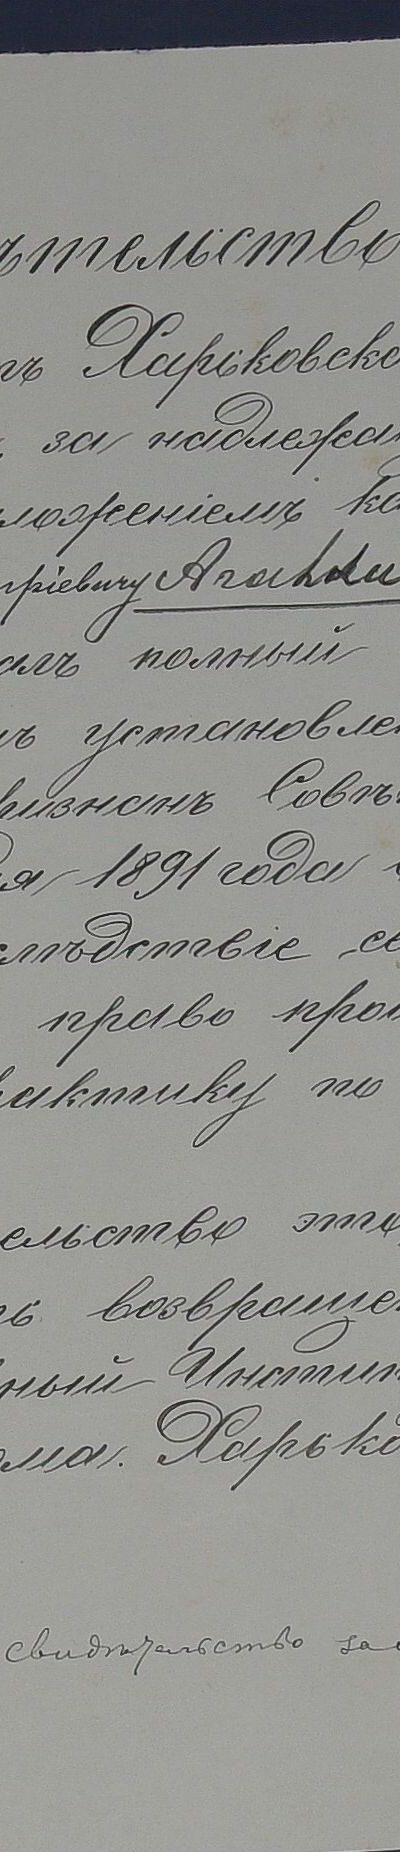 ѣтельство
тъ Харьковско
за надлежа
ложеніемъ Ко
тріевичу Агабаи
алъ полный
мъ установле
признанъ Совѣ
я 1891 года
слѣдствіе се
право прои
рактику по
ельство это
ть возвраще
ный Инстит
ома. Харько
свидѣтельство за